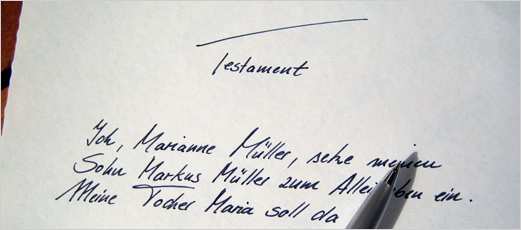 Testament
Ich, Marianne Müller, setze meinen
Sohn Markus Müller zum Alleinerben ein.
Meine Tocher Maria soll da